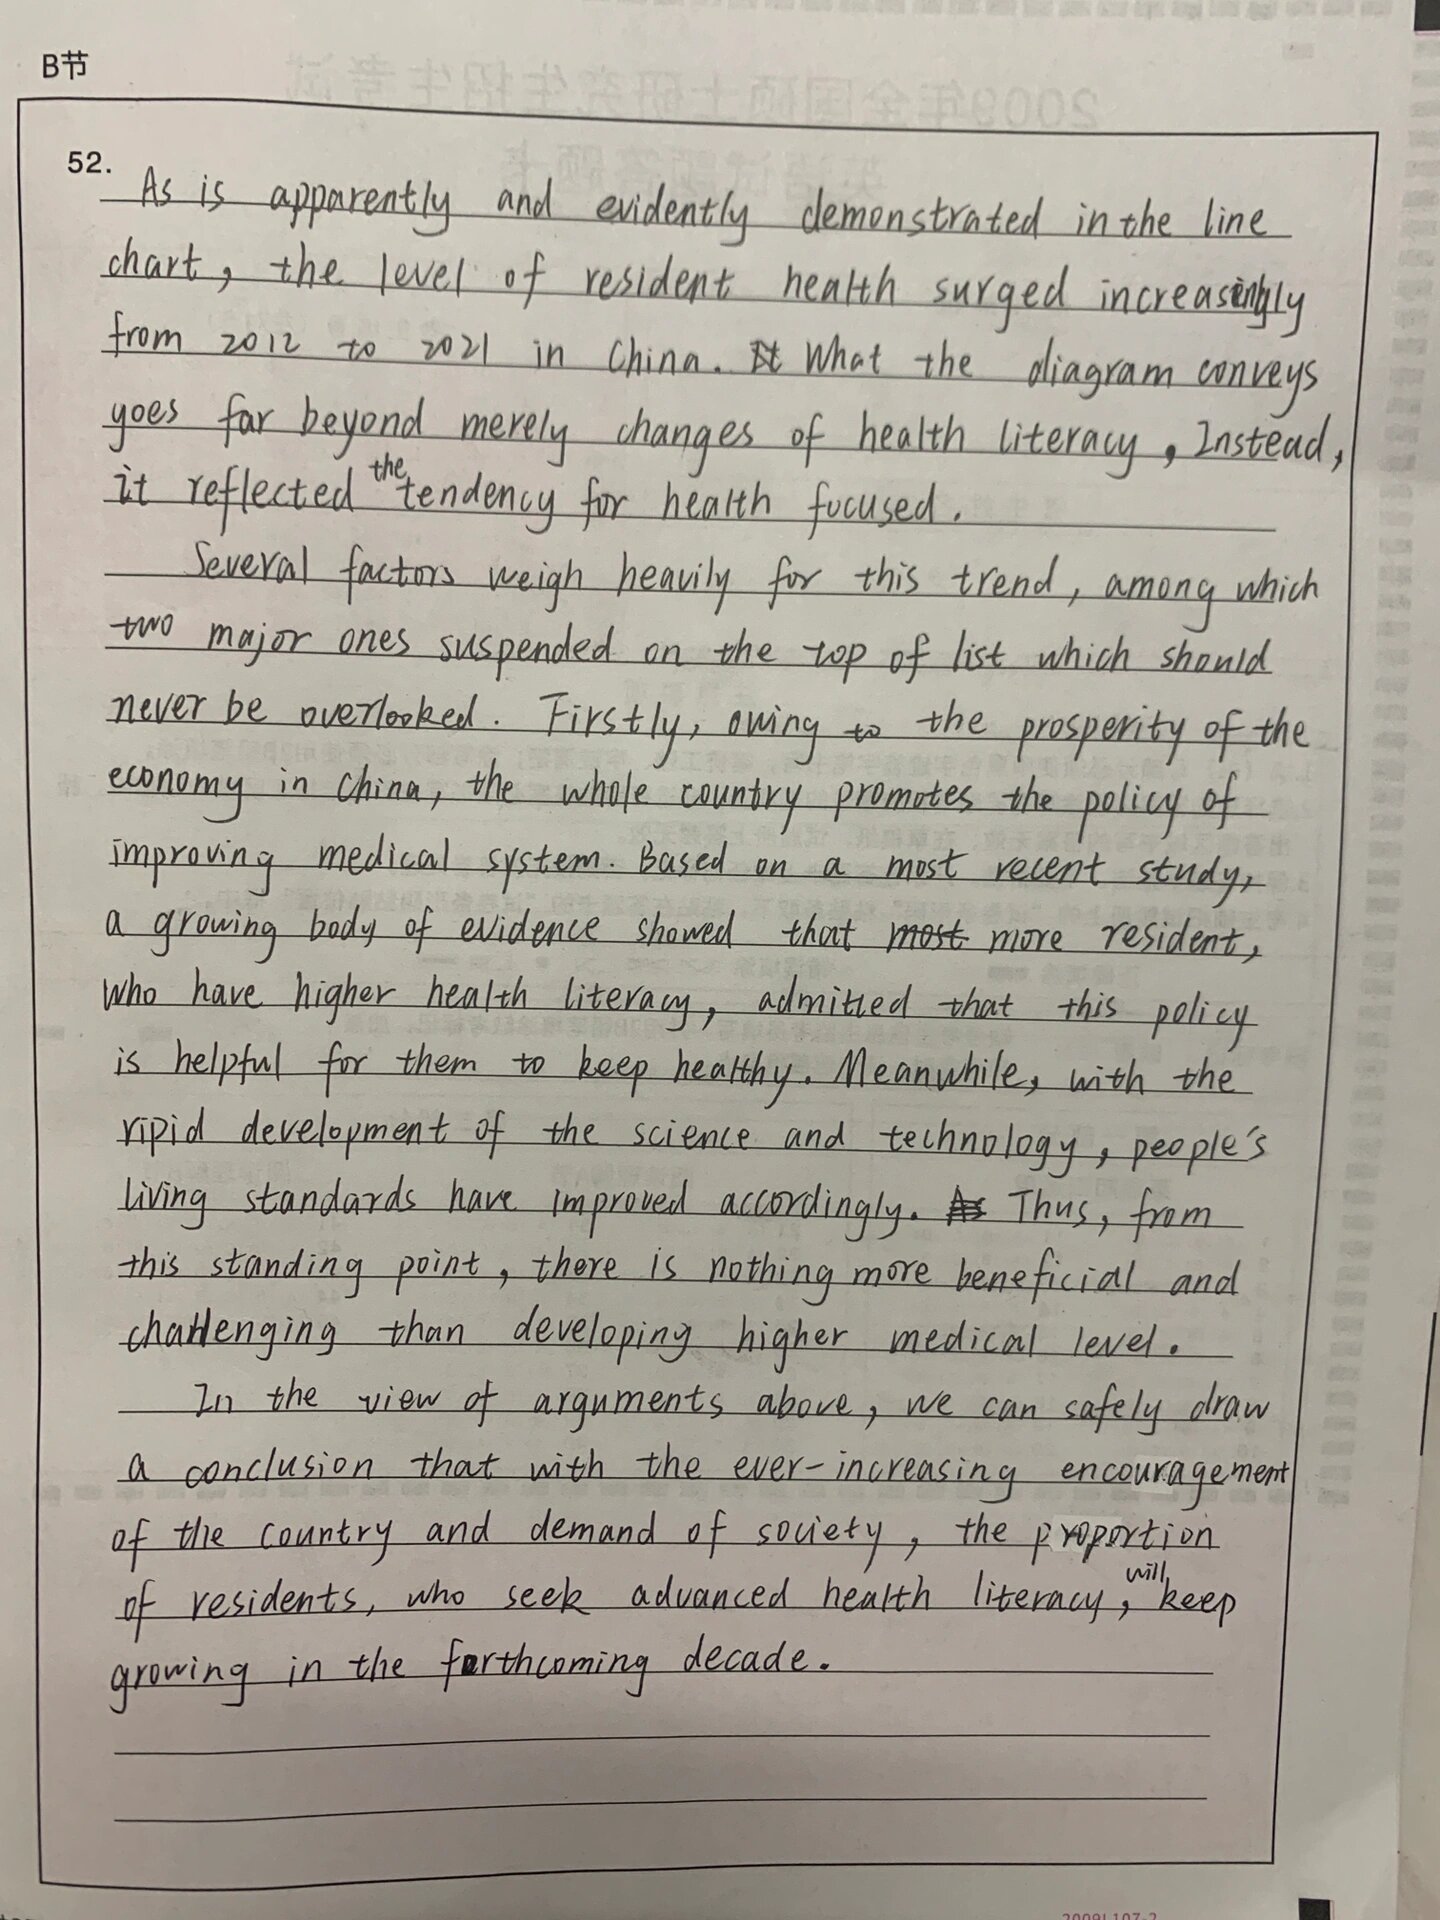 B节
52.
As is apparently and evidently demonstrated in the line
chart, the level of resident health surged increasingly
from 2012 to 2021 in China. It What the diagram conveys
goes far beyond merely changes of health literacy, Instead,
it reflected the tendency for health focused.
Several factors weigh heavily for this trend, among which
two major ones suspended on the top of list which should
never be overlooked. Firstly, owing to the prosperity of the
economy in China, the whole country promotes the policy of
improving medical system. Based on a most recent study,
a growing body of evidence showed that most more resident,
who have higher health literacy, admitted that this policy
is helpful for them to keep healthy. Meanwhile, with the
ripid development of the science and technology, people's
living standards have improved accordingly. As Thus, from
this standing point, there is nothing more beneficial and
challenging than developing higher medical level.
In the view of arguments above, we can safely draw
a conclusion that with the ever-increasing encouragement
of the country and demand of society, the proportion
of residents, who seek advanced health literacy, will keep
growing in the forthcoming decade.
2009年全国硕士研究生招生考试
英语试题答题卡